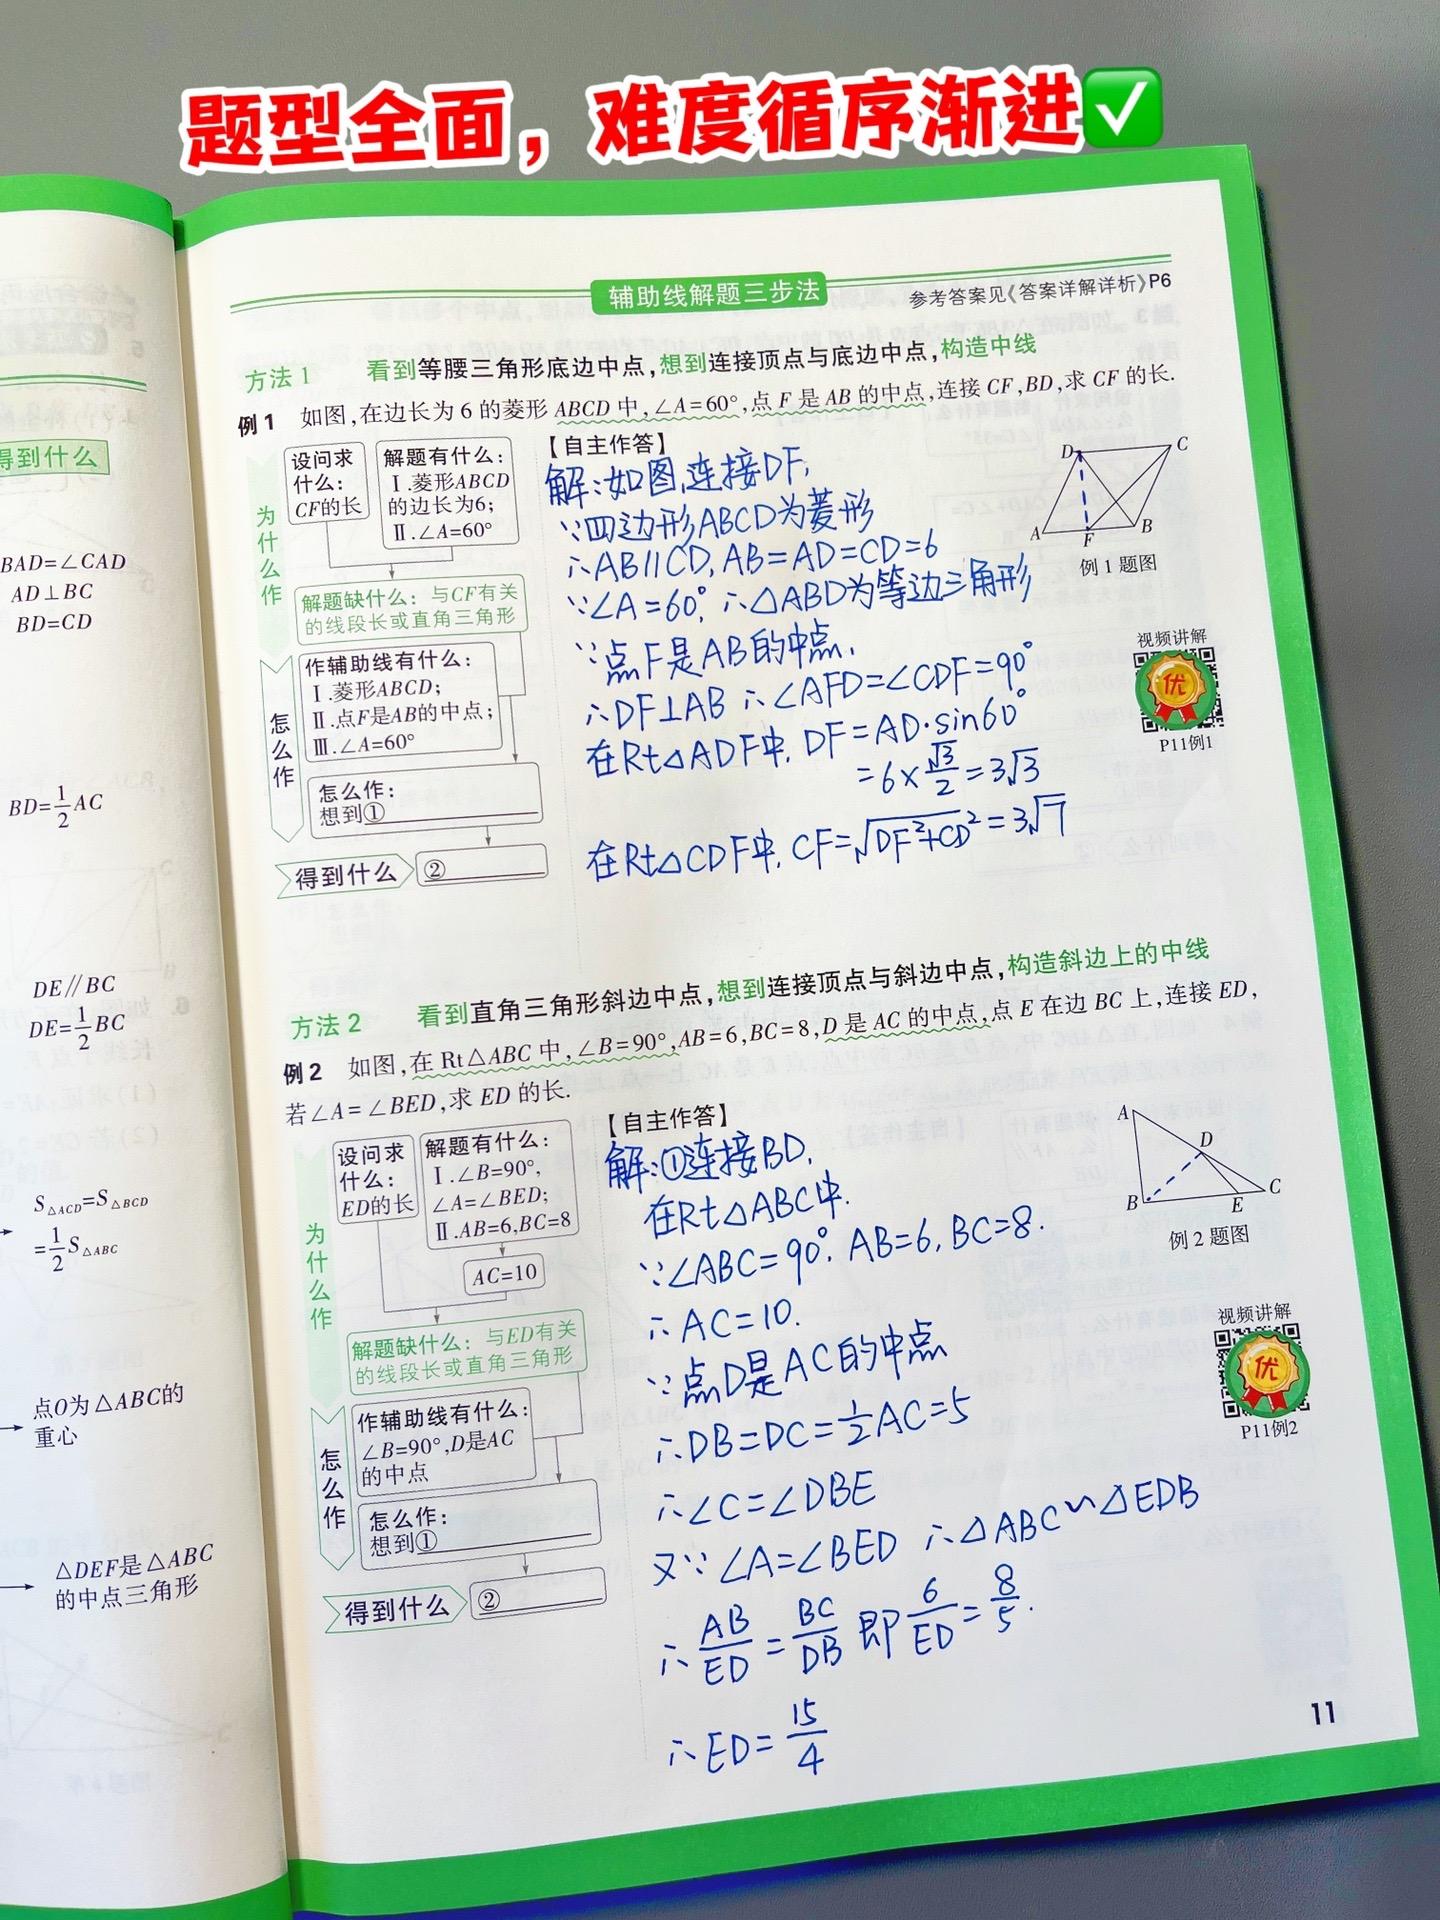 题型全面，难度循序渐进✅
得到什么
BAD=∠CAD
AD⊥BC
BD=CD
BD=1/2AC
DE∥BC
DE=1/2BC
S△ACD=S△BCD
=1/2S△ABC
点O为△ABC的
重心
△DEF是△ABC
的中点三角形
辅助线解题三步法
参考答案见《答案详解详析》P6
方法1 看到等腰三角形底边中点,想到连接顶点与底边中点,构造中线
例1 如图,在边长为6的菱形ABCD中,∠A=60°,点F是AB的中点,连接CF,BD,求CF的长.
为什么作
设问求
什么:
CF的长
解题有什么:
Ⅰ.菱形ABCD
的边长为6;
Ⅱ.∠A=60°
解题缺什么:与CF有关
的线段长或直角三角形
怎么作
作辅助线有什么:
Ⅰ.菱形ABCD;
Ⅱ.点F是AB的中点;
Ⅲ.∠A=60°
怎么作:
想到①
得到什么
②
【自主作答】
解:如图,连接DF,
∵四边形ABCD为菱形
∴AB∥CD,AB=AD=CD=6
∵∠A=60°,∴△ABD为等边三角形
∵点F是AB的中点,
∴DF⊥AB ∴∠AFD=∠CDF=90°
在Rt△ADF中,DF=AD·sin60°
=6×√3/2=3√3
在Rt△CDF中,CF=√DF²+CD²=3√7
D
C
A
F
B
例1题图
视频讲解
优
P11例1
方法2 看到直角三角形斜边中点,想到连接顶点与斜边中点,构造斜边上的中线
例2 如图,在Rt△ABC中,∠B=90°,AB=6,BC=8,D是AC的中点,点E在边BC上,连接ED,
若∠A=∠BED,求ED的长.
为什么作
设问求
什么:
ED的长
解题有什么:
Ⅰ.∠B=90°,
∠A=∠BED;
Ⅱ.AB=6,BC=8
AC=10
解题缺什么:与ED有关
的线段长或直角三角形
怎么作
作辅助线有什么:
∠B=90°,D是AC
的中点
怎么作:
想到①
得到什么
②
【自主作答】
解:①连接BD,
在Rt△ABC中.
∵∠ABC=90°,AB=6,BC=8.
∴AC=10.
∵点D是AC的中点
∴DB=DC=1/2AC=5
∴∠C=∠DBE
又∵∠A=∠BED ∴△ABC∽△EDB
∴AB/ED=BC/DB 即6/ED=8/5.
∴ED=15/4
A
D
B
E
C
例2题图
视频讲解
优
P11例2
11